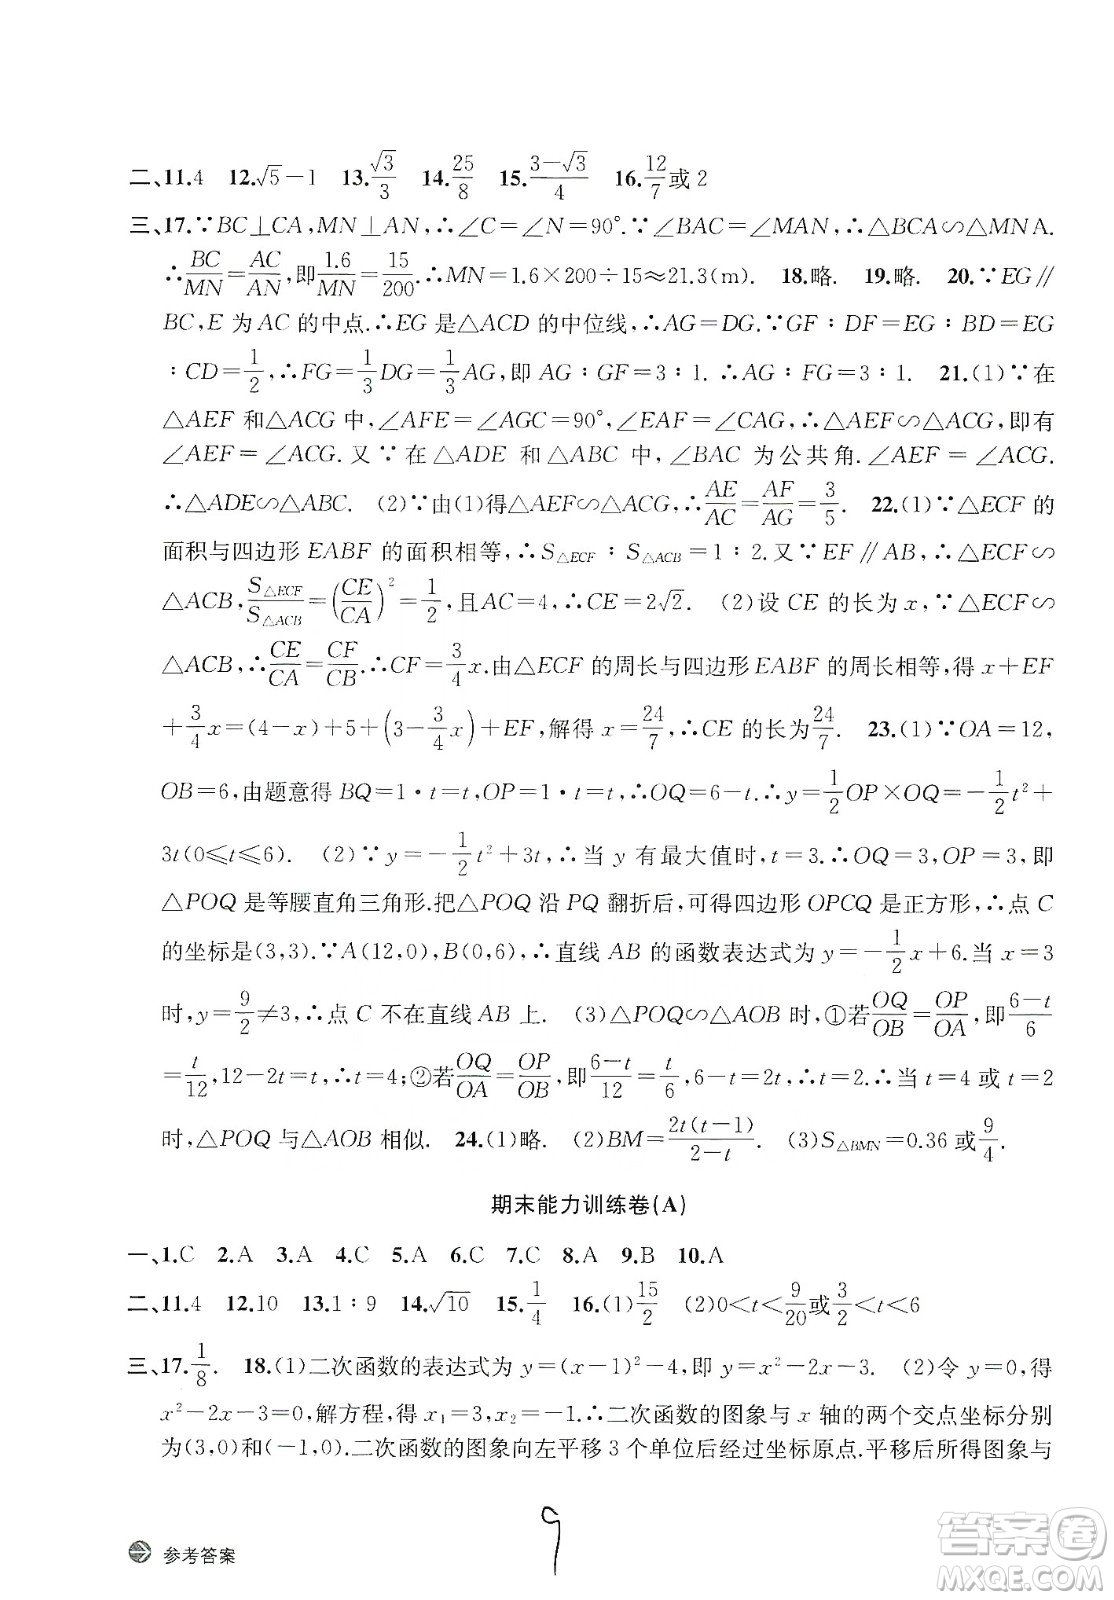 二、11.4 12.√5－1 13.√3/3 14.25/8 15.(3－√3)/4 16.12/7或2
三、17.∵BC⊥CA,MN⊥AN,∴∠C＝∠N＝90°.∵∠BAC＝∠MAN,∴△BCA∽△MNA.
∴BC/MN＝AC/AN,即1.6/MN＝15/200.∴MN＝1.6×200÷15≈21.3(m). 18.略. 19.略. 20.∵EG∥
BC,E 为 AC 的中点.∴EG 是△ACD 的中位线,∴AG＝DG.∵GF∶DF＝EG∶BD＝EG
∶CD＝1/2,∴FG＝1/3DG＝1/3AG,即 AG∶GF＝3∶1.∴AG∶FG＝3∶1. 21.(1)∵在
△AEF 和△ACG 中,∠AFE＝∠AGC＝90°,∠EAF＝∠CAG,∴△AEF∽△ACG,即有
∠AEF＝∠ACG.又∵在△ADE 和△ABC 中,∠BAC 为公共角.∠AEF＝∠ACG.
∴△ADE∽△ABC. (2)∵由(1)得△AEF∽△ACG,∴AE/AC＝AF/AG＝3/5. 22.(1)∵△ECF 的
面积与四边形 EABF 的面积相等,∴S△ECF∶S△ACB＝1∶2.又∵EF∥AB,∴△ECF∽
△ACB,S△ECF/S△ACB＝(CE/CA)²＝1/2,且AC＝4,∴CE＝2√2. (2)设 CE 的长为 x,∵△ECF∽
△ACB,∴CE/CA＝CF/CB.∴CF＝3/4x.由△ECF 的周长与四边形EABF 的周长相等,得 x＋EF
＋3/4x＝(4－x)＋5＋(3－3/4x)＋EF,解得 x＝24/7,∴CE 的长为24/7. 23.(1)∵OA＝12,
OB＝6,由题意得 BQ＝1·t＝t,OP＝1·t＝t.∴OQ＝6－t.∴y＝1/2OP×OQ＝－1/2t²＋
3t(0≤t≤6). (2)∵y＝－1/2t²＋3t,∴当 y 有最大值时,t＝3.∴OQ＝3,OP＝3,即
△POQ 是等腰直角三角形.把△POQ 沿 PQ 翻折后,可得四边形 OPCQ 是正方形,∴点 C
的坐标是(3,3).∵A(12,0),B(0,6),∴直线 AB 的函数表达式为 y＝－1/2x＋6.当 x＝3
时,y＝9/2≠3,∴点 C 不在直线 AB 上. (3)△POQ∽△AOB 时,①若OQ/OB＝OP/OA,即(6－t)/6
＝t/12,12－2t＝t,∴t＝4;②若OQ/OA＝OP/OB,即(6－t)/12＝t/6,6－t＝2t,∴t＝2.∴当 t＝4 或 t＝2
时,△POQ 与△AOB 相似. 24.(1)略. (2)BM＝2t(t－1)/(2－t). (3)S△BMN＝0.36或9/4.
期末能力训练卷(A)
一、1.C 2.A 3.A 4.C 5.A 6.C 7.C 8.A 9.B 10.A
二、11.4 12.10 13.1∶9 14.√10 15.1/4 16.(1)15/2 (2)0＜t＜9/20或3/2＜t＜6
三、17.1/8. 18.(1)二次函数的表达式为 y＝(x－1)²－4,即 y＝x²－2x－3. (2)令 y＝0,得
x²－2x－3＝0,解方程,得 x₁＝3,x₂＝－1.∴二次函数的图象与 x 轴的两个交点坐标分别
为(3,0)和(－1,0).二次函数的图象向左平移 3 个单位后经过坐标原点.平移后所得图象与
9
参考答案
答案卷
MXQE.COM